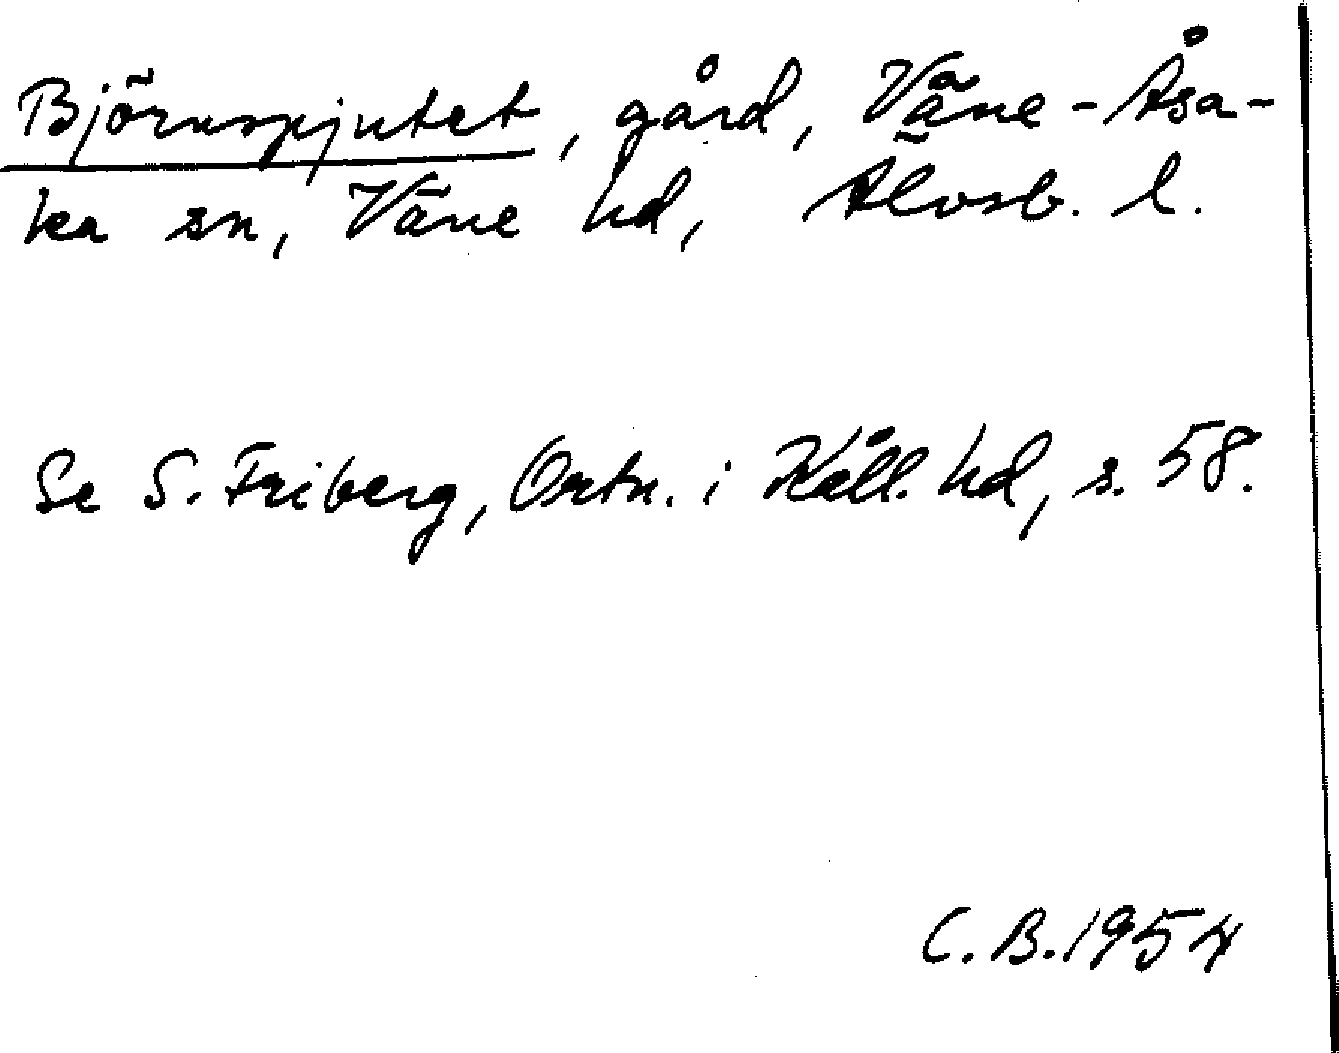 Björnspjutet, gård, Väne-Åsa-
ka sn, Väne hd, Älvsb. l.
Se S. Friberg, Ortn. i Kåll. hd, s. 58.
C. B. 1954